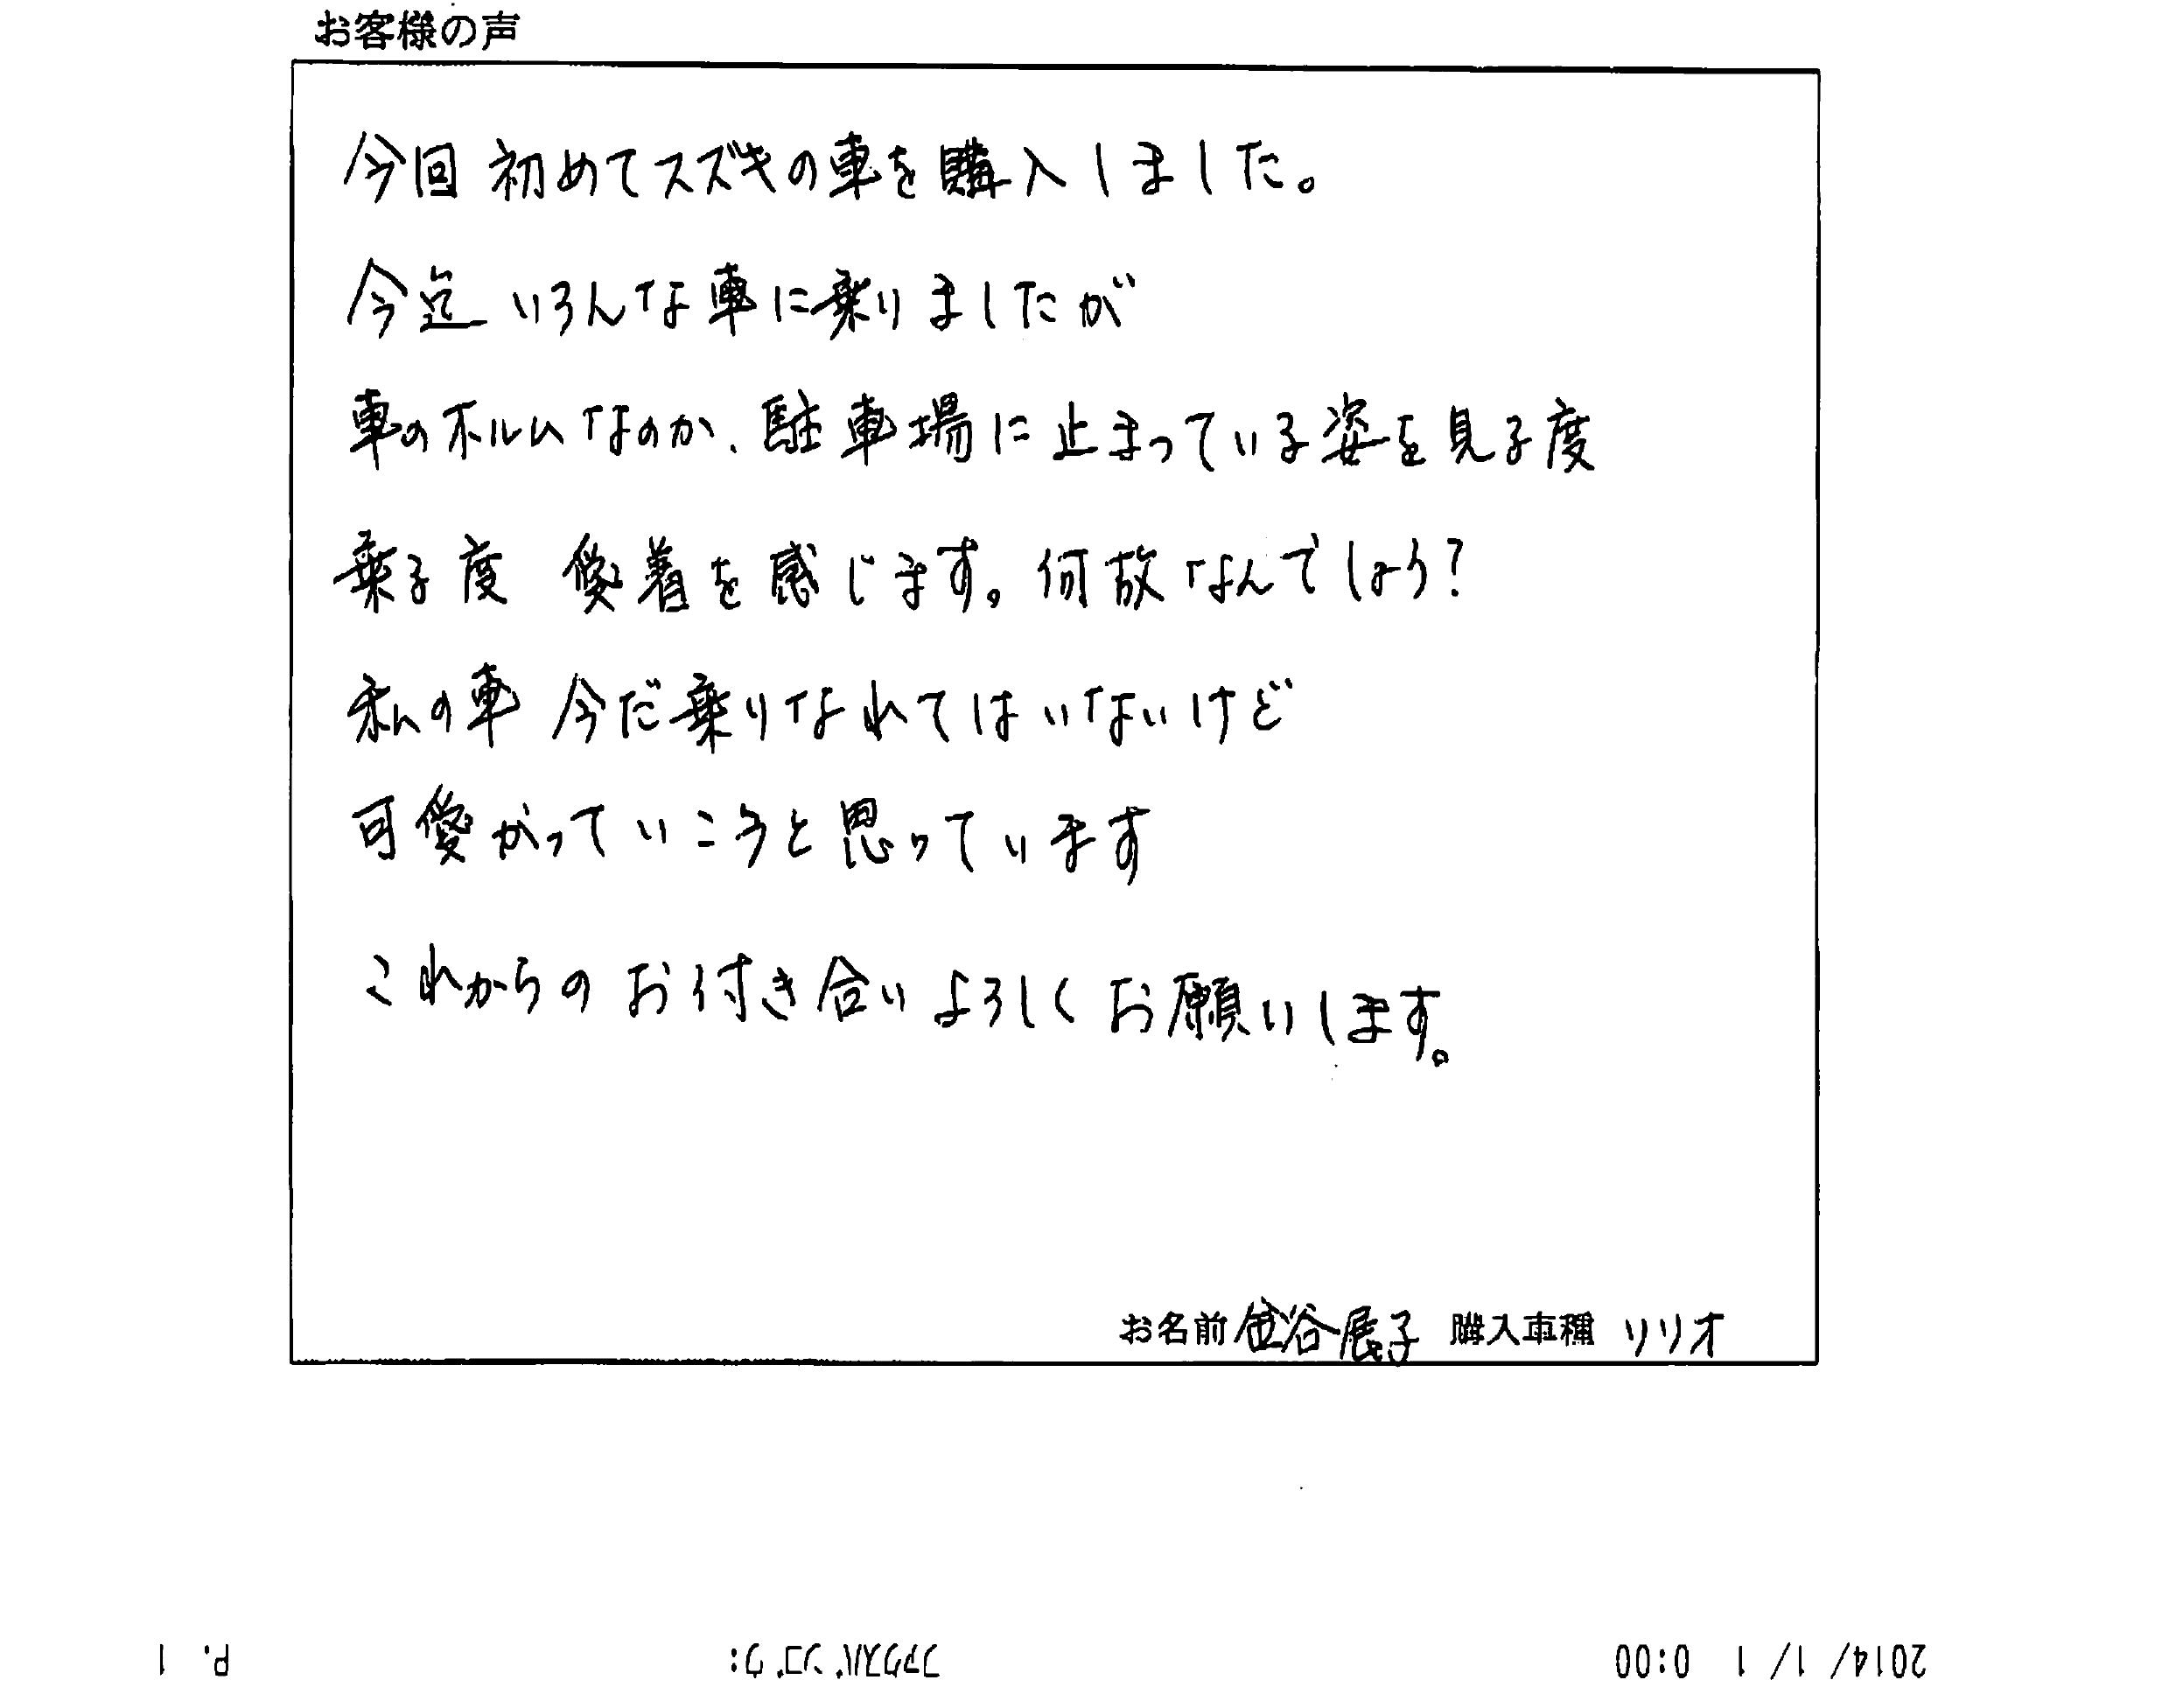 お客様の声
今回 初めてスズキの車を購入しました。
今迄 いろんな車に乗りましたが
車のホルムなのか、駐車場に止まっている姿を見る度
乗る度 愛着を感じます。何故なんでしょう?
私の車 今だ乗りなれてはいないけど
可愛がっていこうと思っています
これからの お付き合い よろしく お願いします。
お名前 金谷展子 購入車種 リリオ
2014/ 1/ 1 0:00 ファクスバンゴウ: P. 1